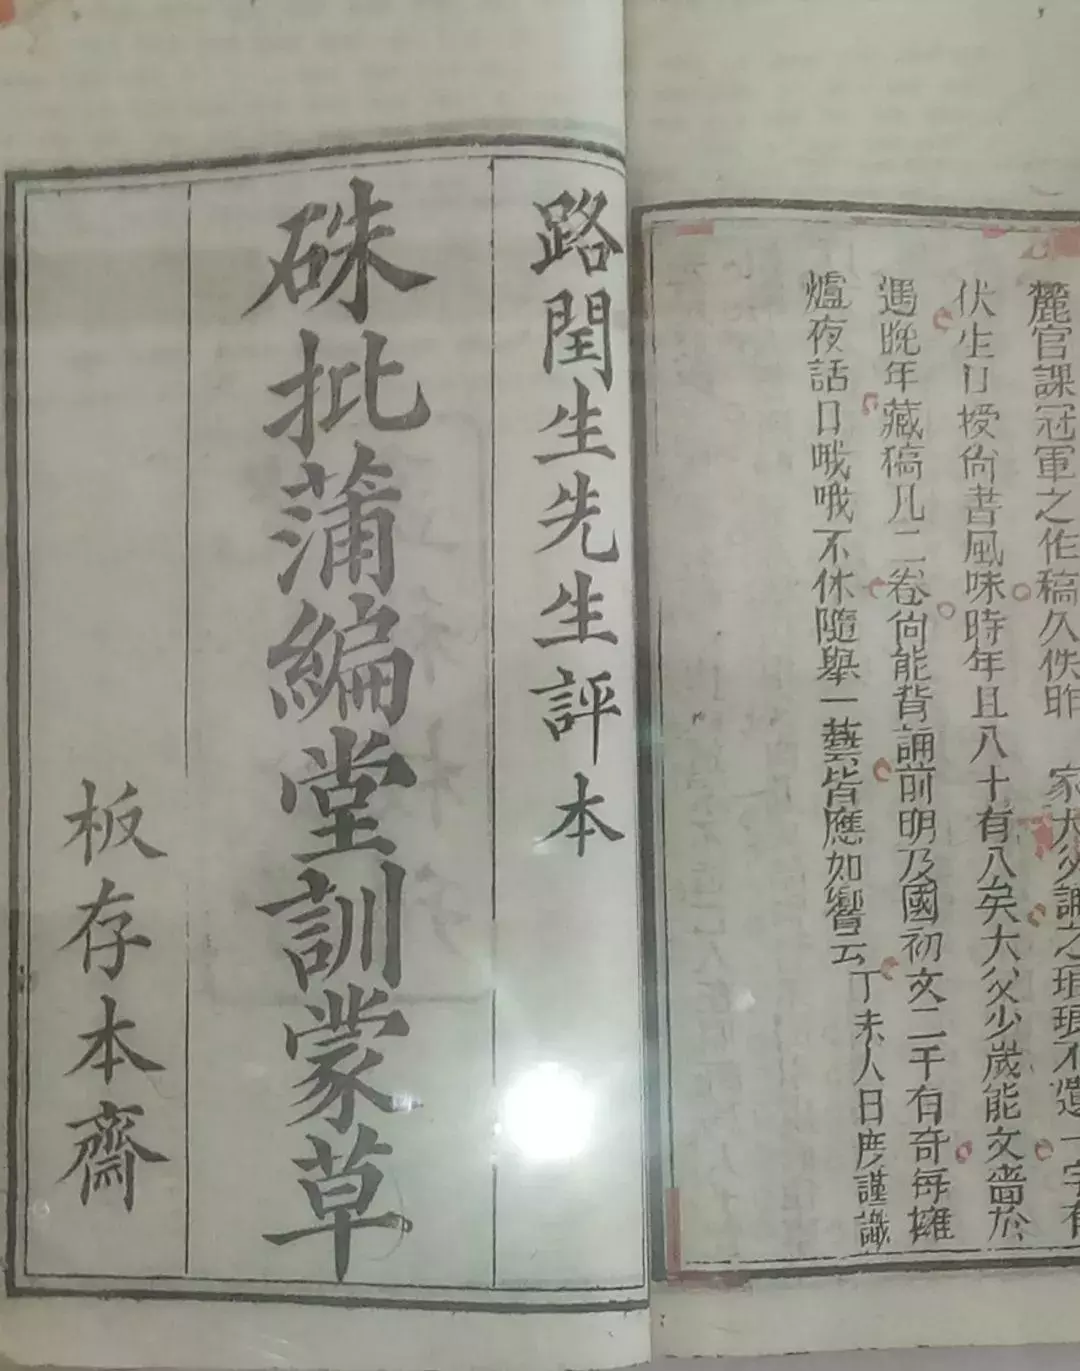 麓官課冠軍之作稿久佚昨 家大父誦之琅琅不遺一字有
伏生口授尙書風味時年且八十有八矣大父少歲能文嗇於
遇晚年藏稿凡二卷尙能背誦前明及國初文二千有奇每擁
爐夜話口哦哦不休隨舉一藝皆應如響云
丁未人日彦謹識
路閏生先生評本
硃批蒲編堂訓蒙草
板存本齋